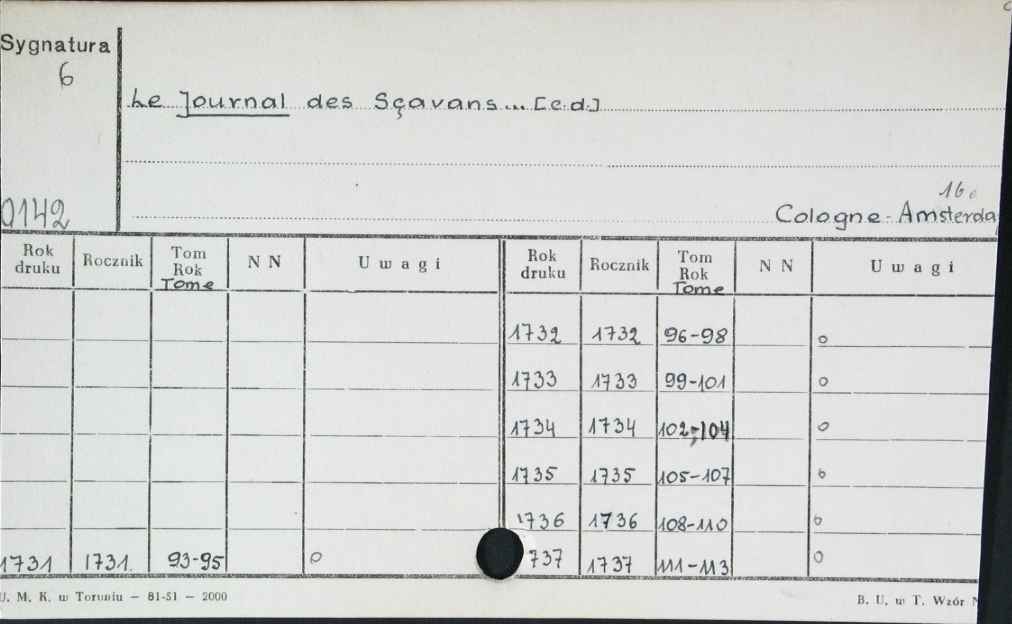 Sygnatura
6
Le Journal des Sçavans... [c.d.]
16°
0142
Cologne-Amsterda
Rok druku Rocznik Tom Rok Tome N N Uwagi Rok druku Rocznik Tom Rok Tome N N Uwagi
1732 1732 96-98 o
1733 1733 99-101 o
1734 1734 102-104 o
1735 1735 105-107 o
1736 1736 108-110 o
1731 1731. 93-95 o 737 1737 111-113 o
U. M. K. w Toruniu — 81-51 — 2000
B. U. w T. Wzór